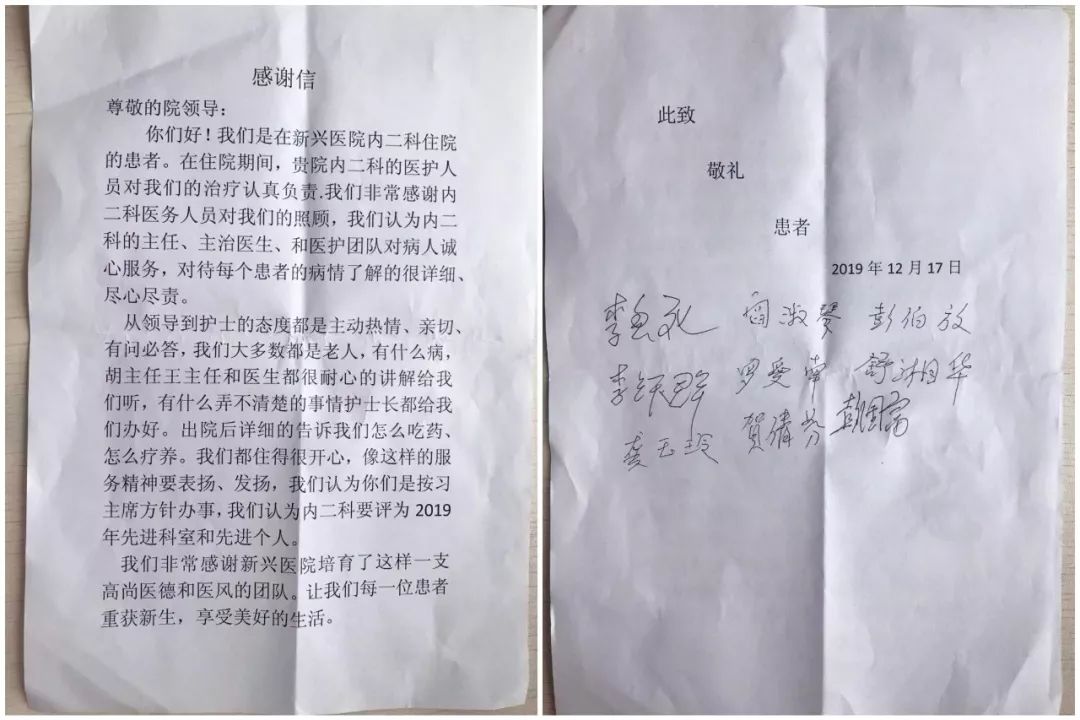 感谢信
尊敬的院领导：
你们好！我们是在新兴医院内二科住院
的患者。在住院期间，贵院内二科的医护人
员对我们的治疗认真负责.我们非常感谢内
二科医务人员对我们的照顾，我们认为内二
科的主任、主治医生、和医护团队对病人诚
心服务，对待每个患者的病情了解的很详细、
尽心尽责。
从领导到护士的态度都是主动热情、亲切、
有问必答，我们大多数都是老人，有什么病，
胡主任王主任和医生都很耐心的讲解给我
们听，有什么弄不清楚的事情护士长都给我
们办好。出院后详细的告诉我们怎么吃药、
怎么疗养。我们都住得很开心，像这样的服
务精神要表扬、发扬，我们认为你们是按习
主席方针办事，我们认为内二科要评为 2019
年先进科室和先进个人。
我们非常感谢新兴医院培育了这样一支
高尚医德和医风的团队。让我们每一位患者
重获新生，享受美好的生活。
此致
敬礼
患者
2019 年 12 月 17 日
淑琴 彭伯放
李 罗爱南 舒湘华
龚玉玲 贺倩芬 彭国富